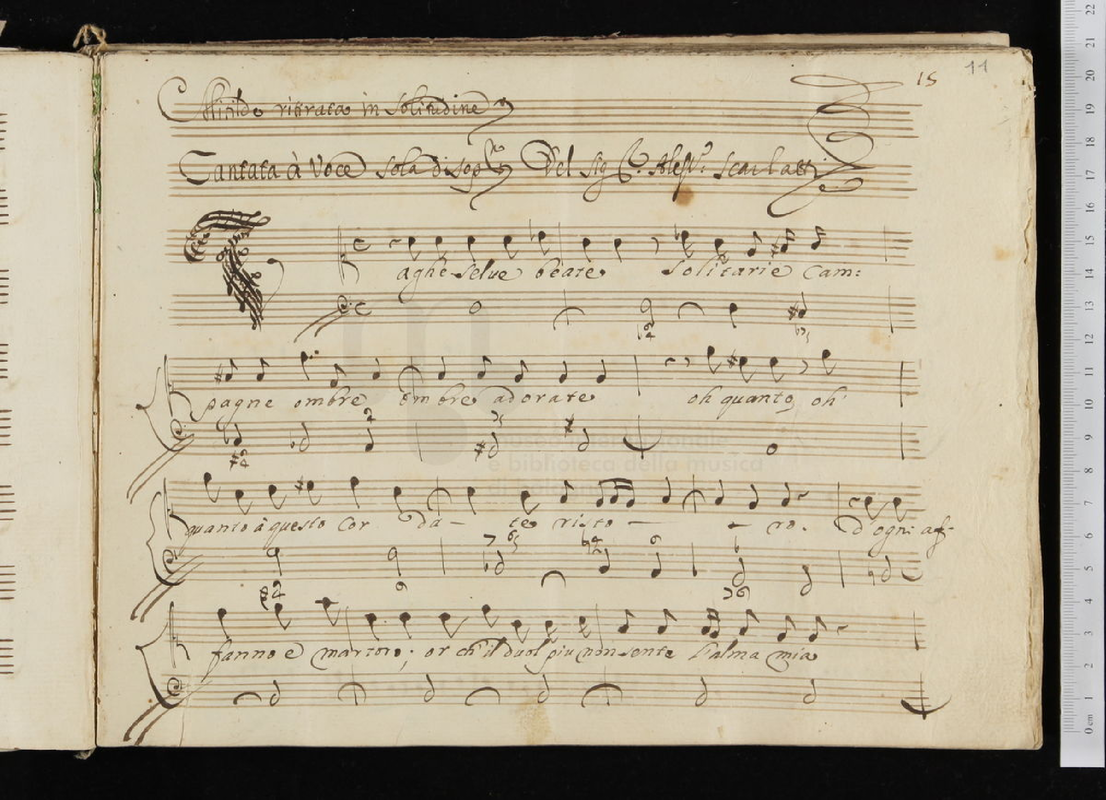 15 11
Clitildo ritirata in Solitudine
Cantata à Voce sola di Sopno Del Sig. C. Alesso. Scarlatti
Vaghe Selve beate, Solitarie Cam:
pagne ombre ombre adorate, oh quanto, oh'
museo internazionale
e biblioteca della musica
di bologna
quanto à questo Cor da - te risto - - ro. d'ogni af-
fanno e martoro, or ch'il duol piu non sente l'alma mia
0 cm 1 2 3 4 5 6 7 8 9 10 11 12 13 14 15 16 17 18 19 20 21 22